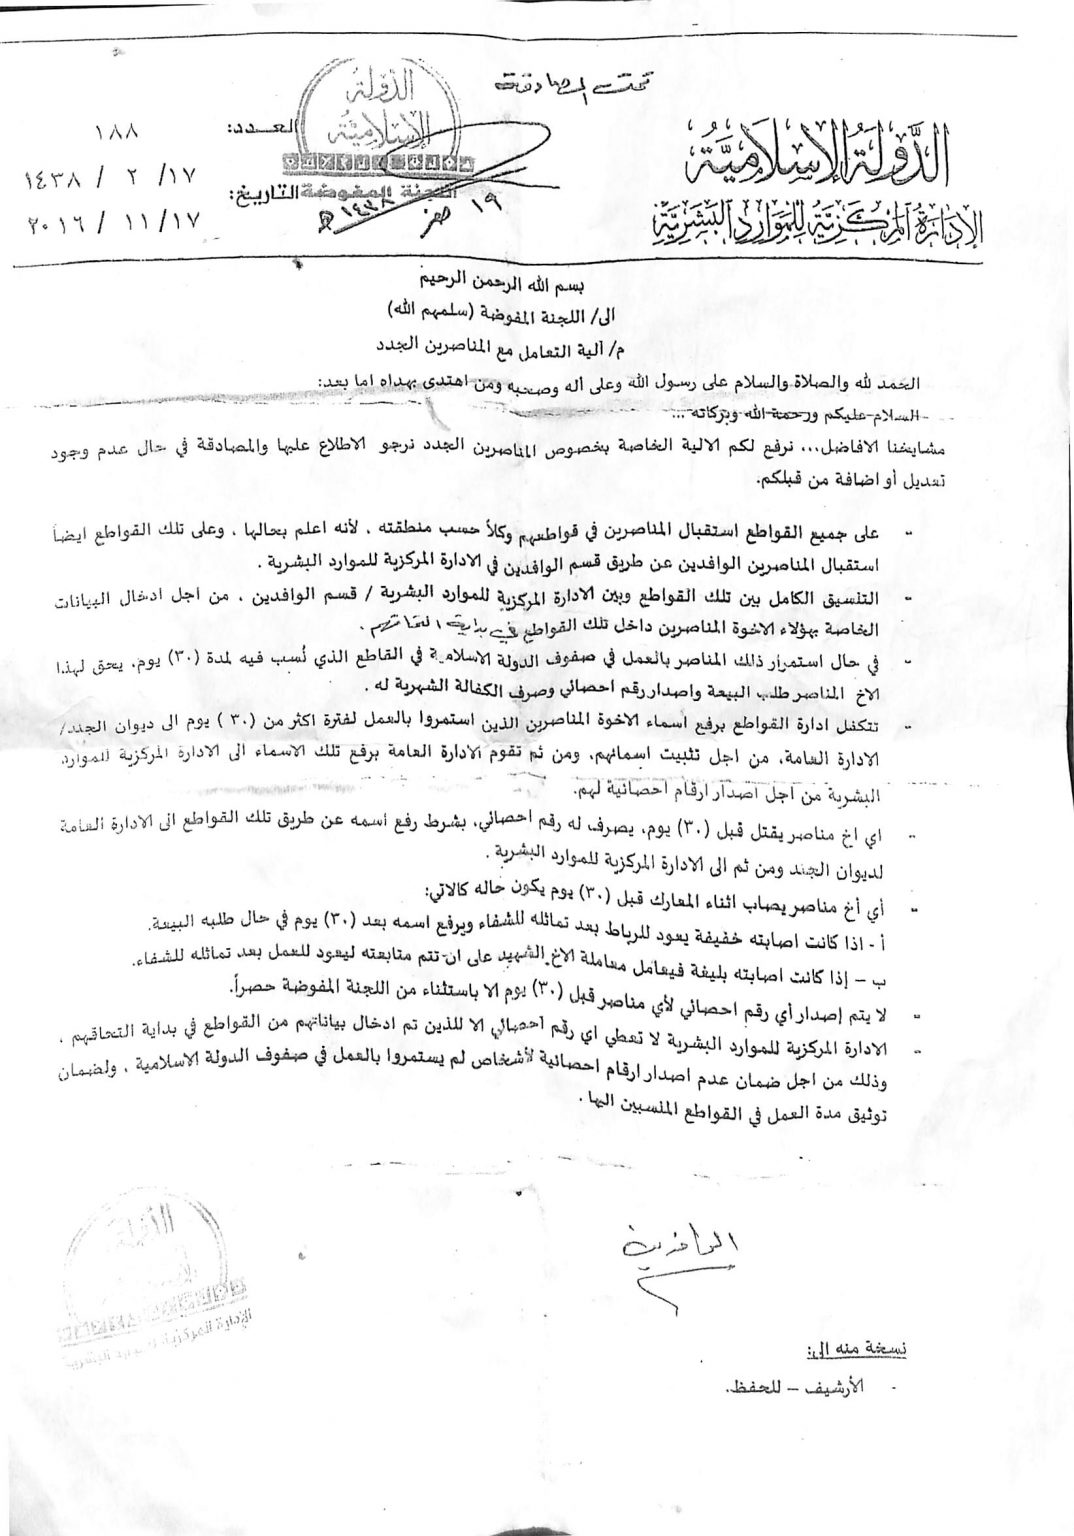 تمت المصادقة
الدولة الإسلامية
الإدارة المركزية للموارد البشرية
الدولة
الإسلامية
اللجنة المفوضة
١٩ صفر ١٤٣٨ هـ
العدد: ١٨٨
التاريخ: ١٧/ ٢ / ١٤٣٨
١٧/ ١١ / ٢٠١٦
بسم الله الرحمن الرحيم
الى/ اللجنة المفوضة (سلمهم الله)
م/ آلية التعامل مع المناصرين الجدد
الحمد لله والصلاة والسلام على رسول الله وعلى أله وصحبه ومن اهتدى بهداه اما بعد:
السلام عليكم ورحمة الله وبركاته ...
مشايخنا الافاضل... نرفع لكم الالية الخاصة بخصوص المناصرين الجدد نرجو الاطلاع عليها والمصادقة في حال عدم وجود
تعديل أو اضافة من قبلكم.
- على جميع القواطع استقبال المناصرين في قواطعهم وكلاً حسب منطقته ، لأنه اعلم بحالها ، وعلى تلك القواطع ايضاً
استقبال المناصرين الوافدين عن طريق قسم الوافدين في الادارة المركزية للموارد البشرية .
- التنسيق الكامل بين تلك القواطع وبين الادارة المركزية للموارد البشرية / قسم الوافدين ، من اجل ادخال البيانات
الخاصة بهؤلاء الاخوة المناصرين داخل تلك القواطع في بداية التحاقهم .
- في حال استمرار ذلك المناصر بالعمل في صفوف الدولة الاسلامية في القاطع الذي نُسب فيه لمدة (٣٠) يوم، يحق لهذا
الاخ المناصر طلب البيعة واصدار رقم احصائي وصرف الكفالة الشهرية له .
- تتكفل ادارة القواطع برفع اسماء الاخوة المناصرين الذين استمروا بالعمل لفترة اكثر من (٣٠ ) يوم الى ديوان الجند/
الادارة العامة، من اجل تثبيت اسمائهم، ومن ثم تقوم الادارة العامة برفع تلك الاسماء الى الادارة المركزية للموارد
البشرية من اجل اصدار ارقام احصائية لهم.
- اي اخ مناصر يقتل قبل (٣٠) يوم، يصرف له رقم احصائي، بشرط رفع اسمه عن طريق تلك القواطع الى الادارة العامة
لديوان الجند ومن ثم الى الادارة المركزية للموارد البشرية .
- أي أخ مناصر يصاب اثناء المعارك قبل (٣٠) يوم يكون حاله كالاتي:
أ - اذا كانت اصابته خفيفة يعود للرباط بعد تماثله للشفاء ويرفع اسمه بعد (٣٠) يوم في حال طلبه البيعة.
ب – إذا كانت اصابته بليغة فيعامل معاملة الاخ الشهيد على ان تتم متابعته ليعود للعمل بعد تماثله للشفاء.
- لا يتم إصدار أي رقم احصائي لأي مناصر قبل (٣٠) يوم الا باستثناء من اللجنة المفوضة حصراً.
- الادارة المركزية للموارد البشرية لا تعطي اي رقم احصائي الا للذين تم ادخال بياناتهم من القواطع في بداية التحاقهم ،
وذلك من اجل ضمان عدم اصدار ارقام احصائية لأشخاص لم يستمروا بالعمل في صفوف الدولة الاسلامية ، ولضمان
توثيق مدة العمل في القواطع المنسبين اليها .
الوافدين
الدولة
الإدارة المركزية للموارد البشرية
نسخة منه الى:
- الأرشيف – للحفظ.